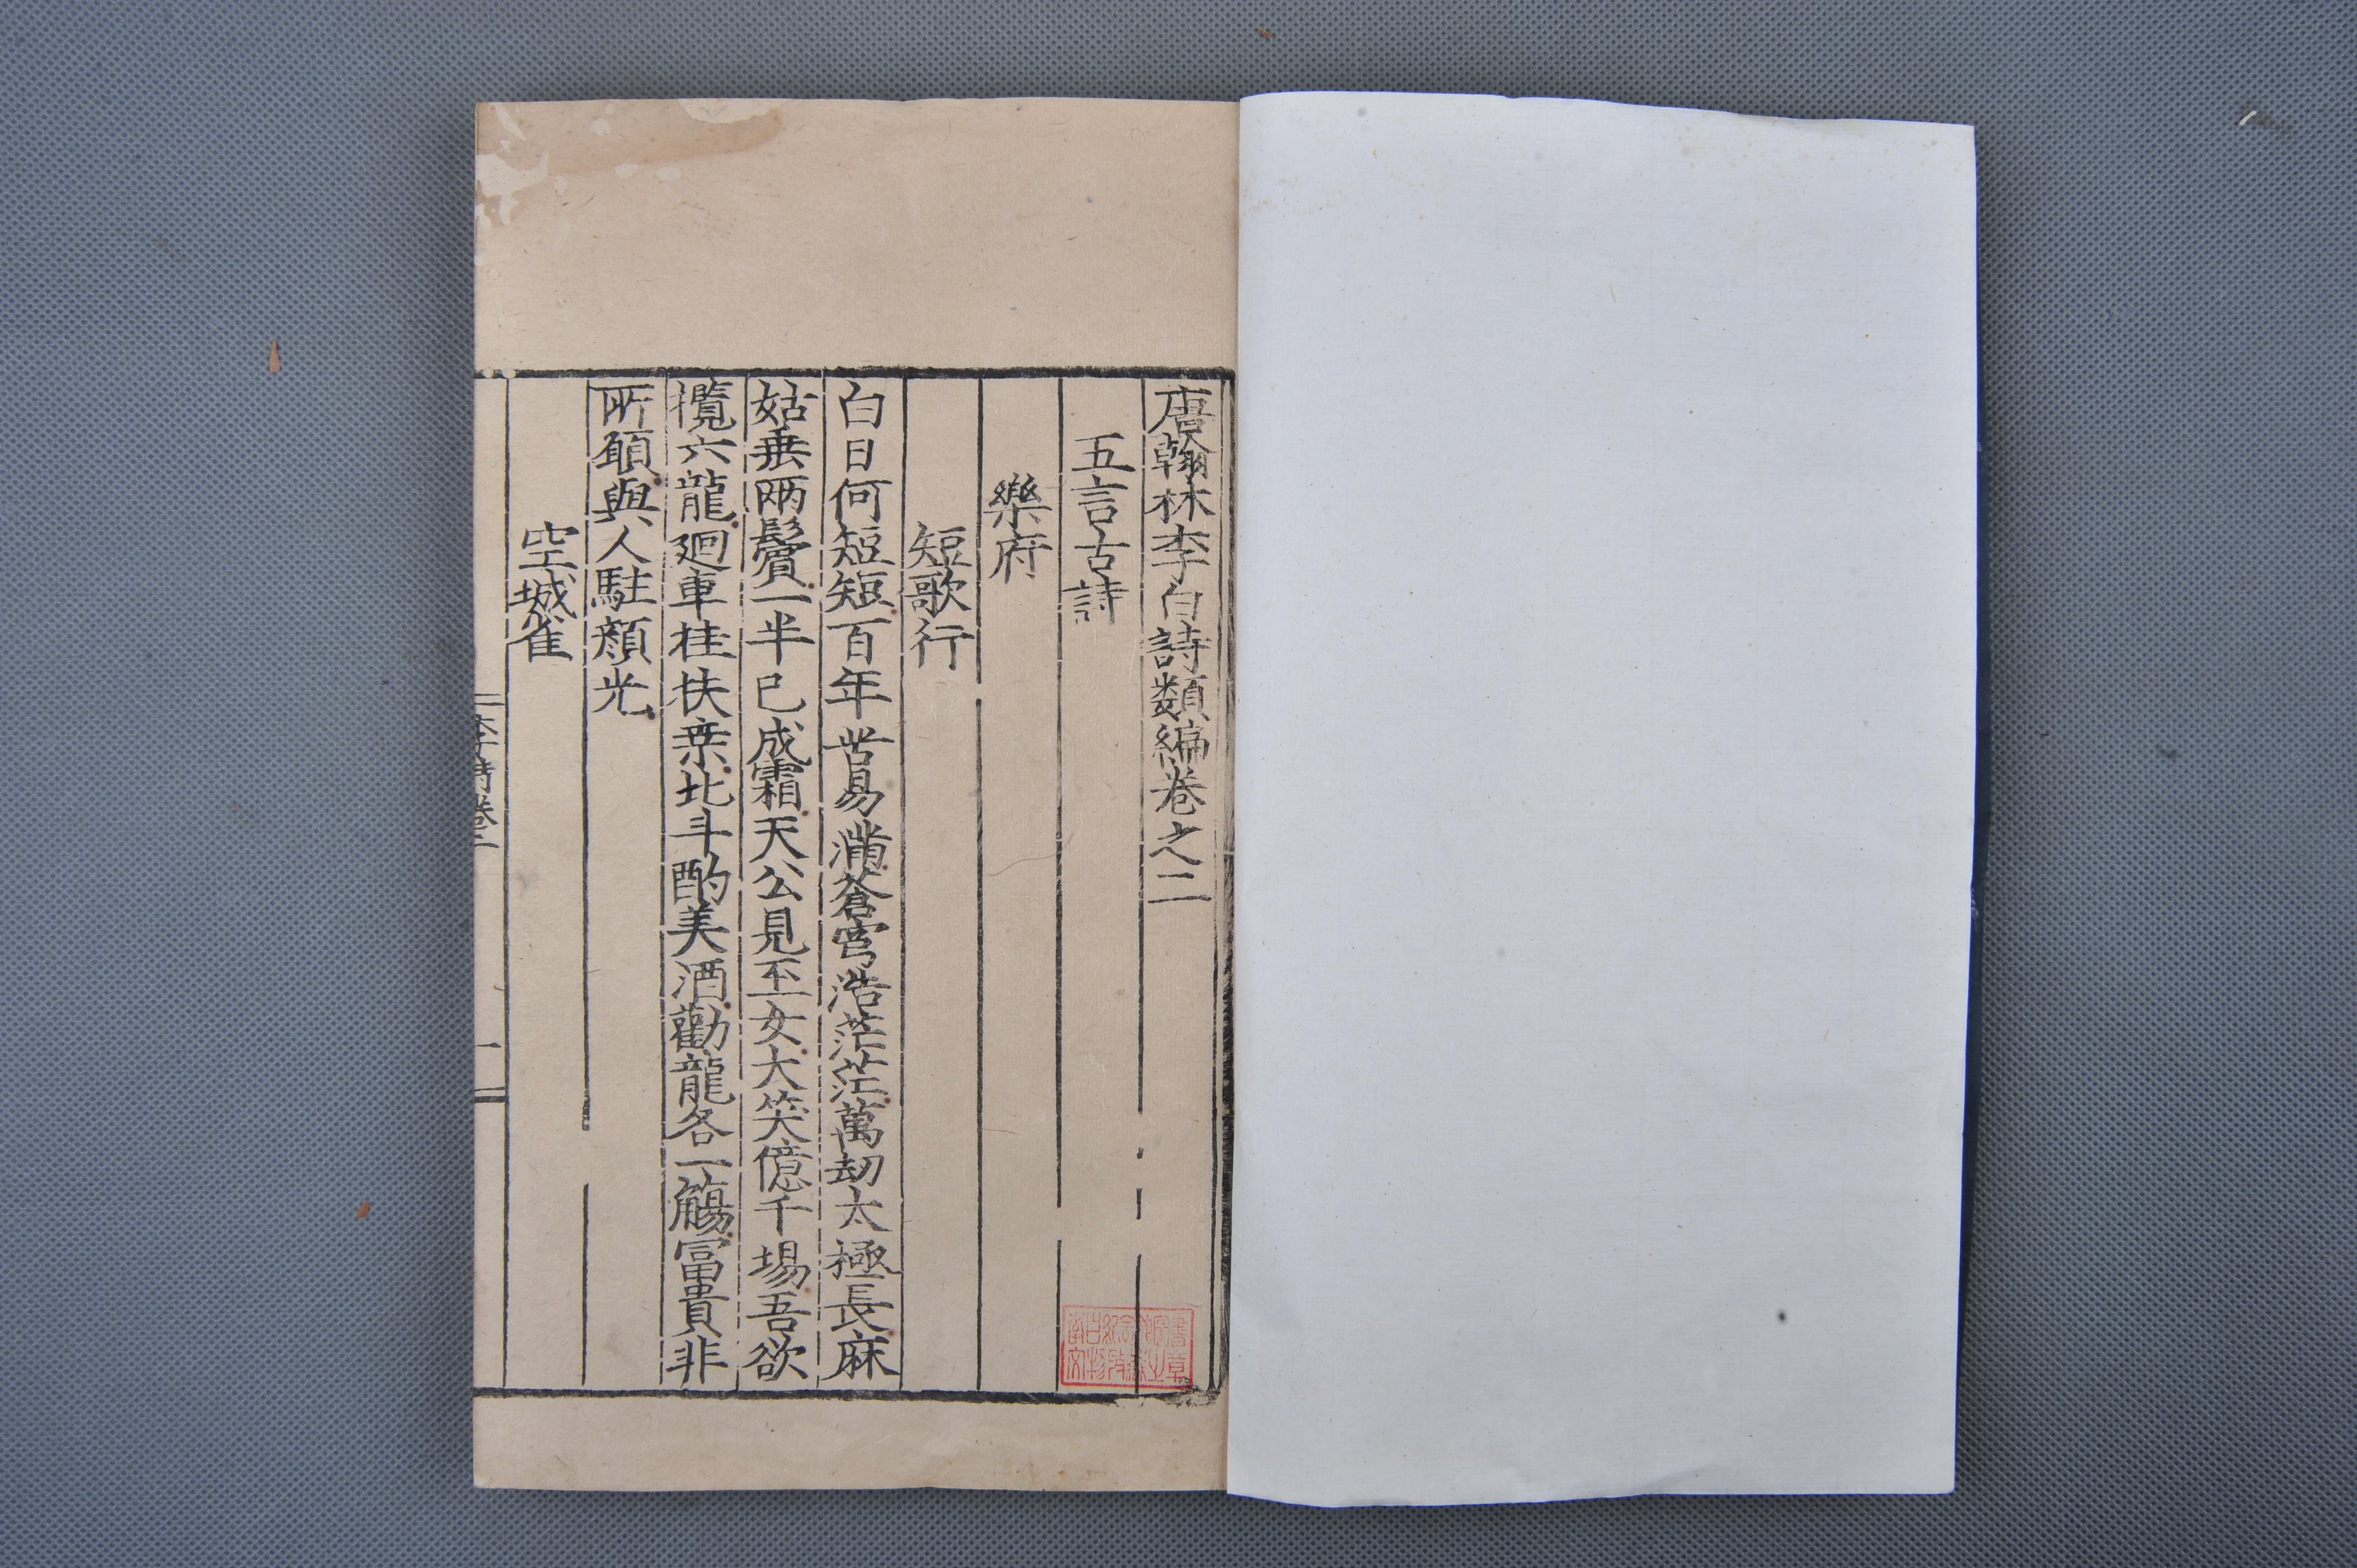 唐翰林李白詩類編卷之二
五言古詩
樂府
短歌行
白日何短短百年苦易滿蒼穹浩茫茫萬劫太極長麻
姑垂兩鬢一半已成霜天公見玉女大笑億千場吾欲
攬六龍廻車挂扶桒北斗酌美酒勸龍各一觴冨貴非
所願與人駐顏光
空城雀
李詩卷二
一